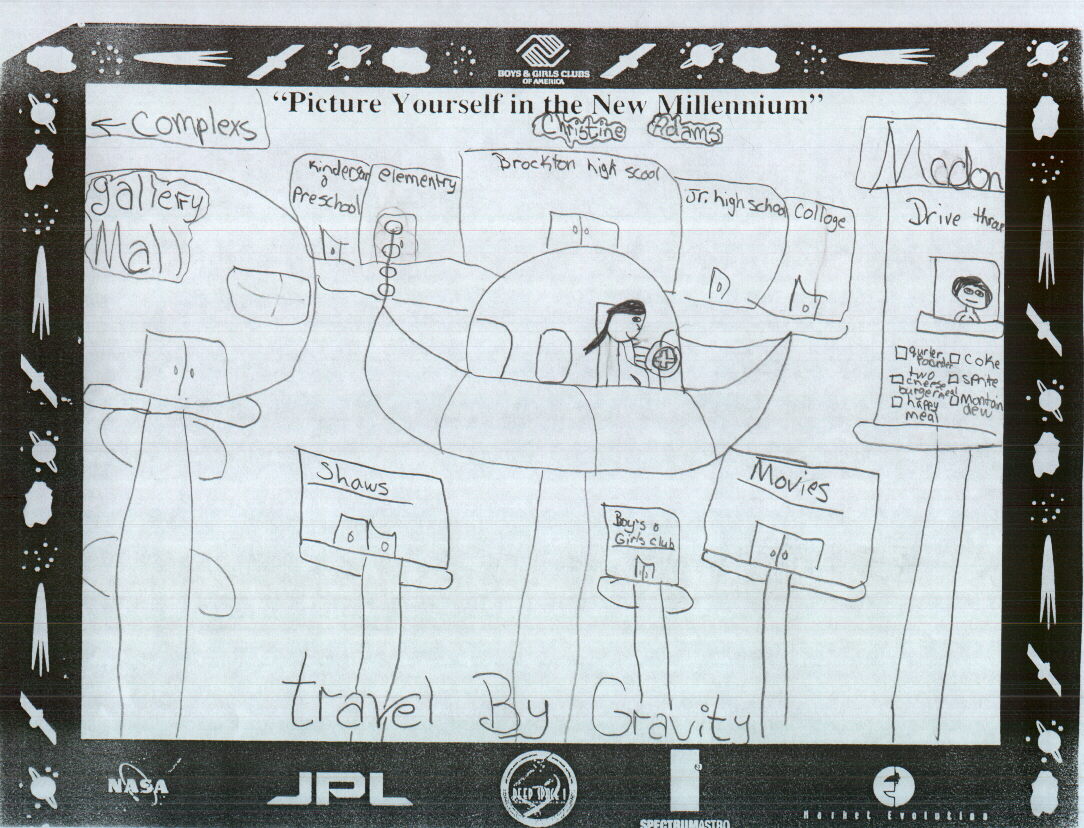 BOYS & GIRLS CLUBS
OF AMERICA
"Picture Yourself in the New Millennium"
Christine Adams
← Complexs
gallery
Mall
Preschool
elementry
Brockton high scool
Jr. high school
Colloge
Drive throu
coke
two
cheese
burger meal
sprite
happy
meal
montain
dew
Shaws
Boy's &
Girls club
Movies
travel By Gravity
NASA
JPL
DEEP SPACE 1
SPECTRUMASTRO
Market Evolution